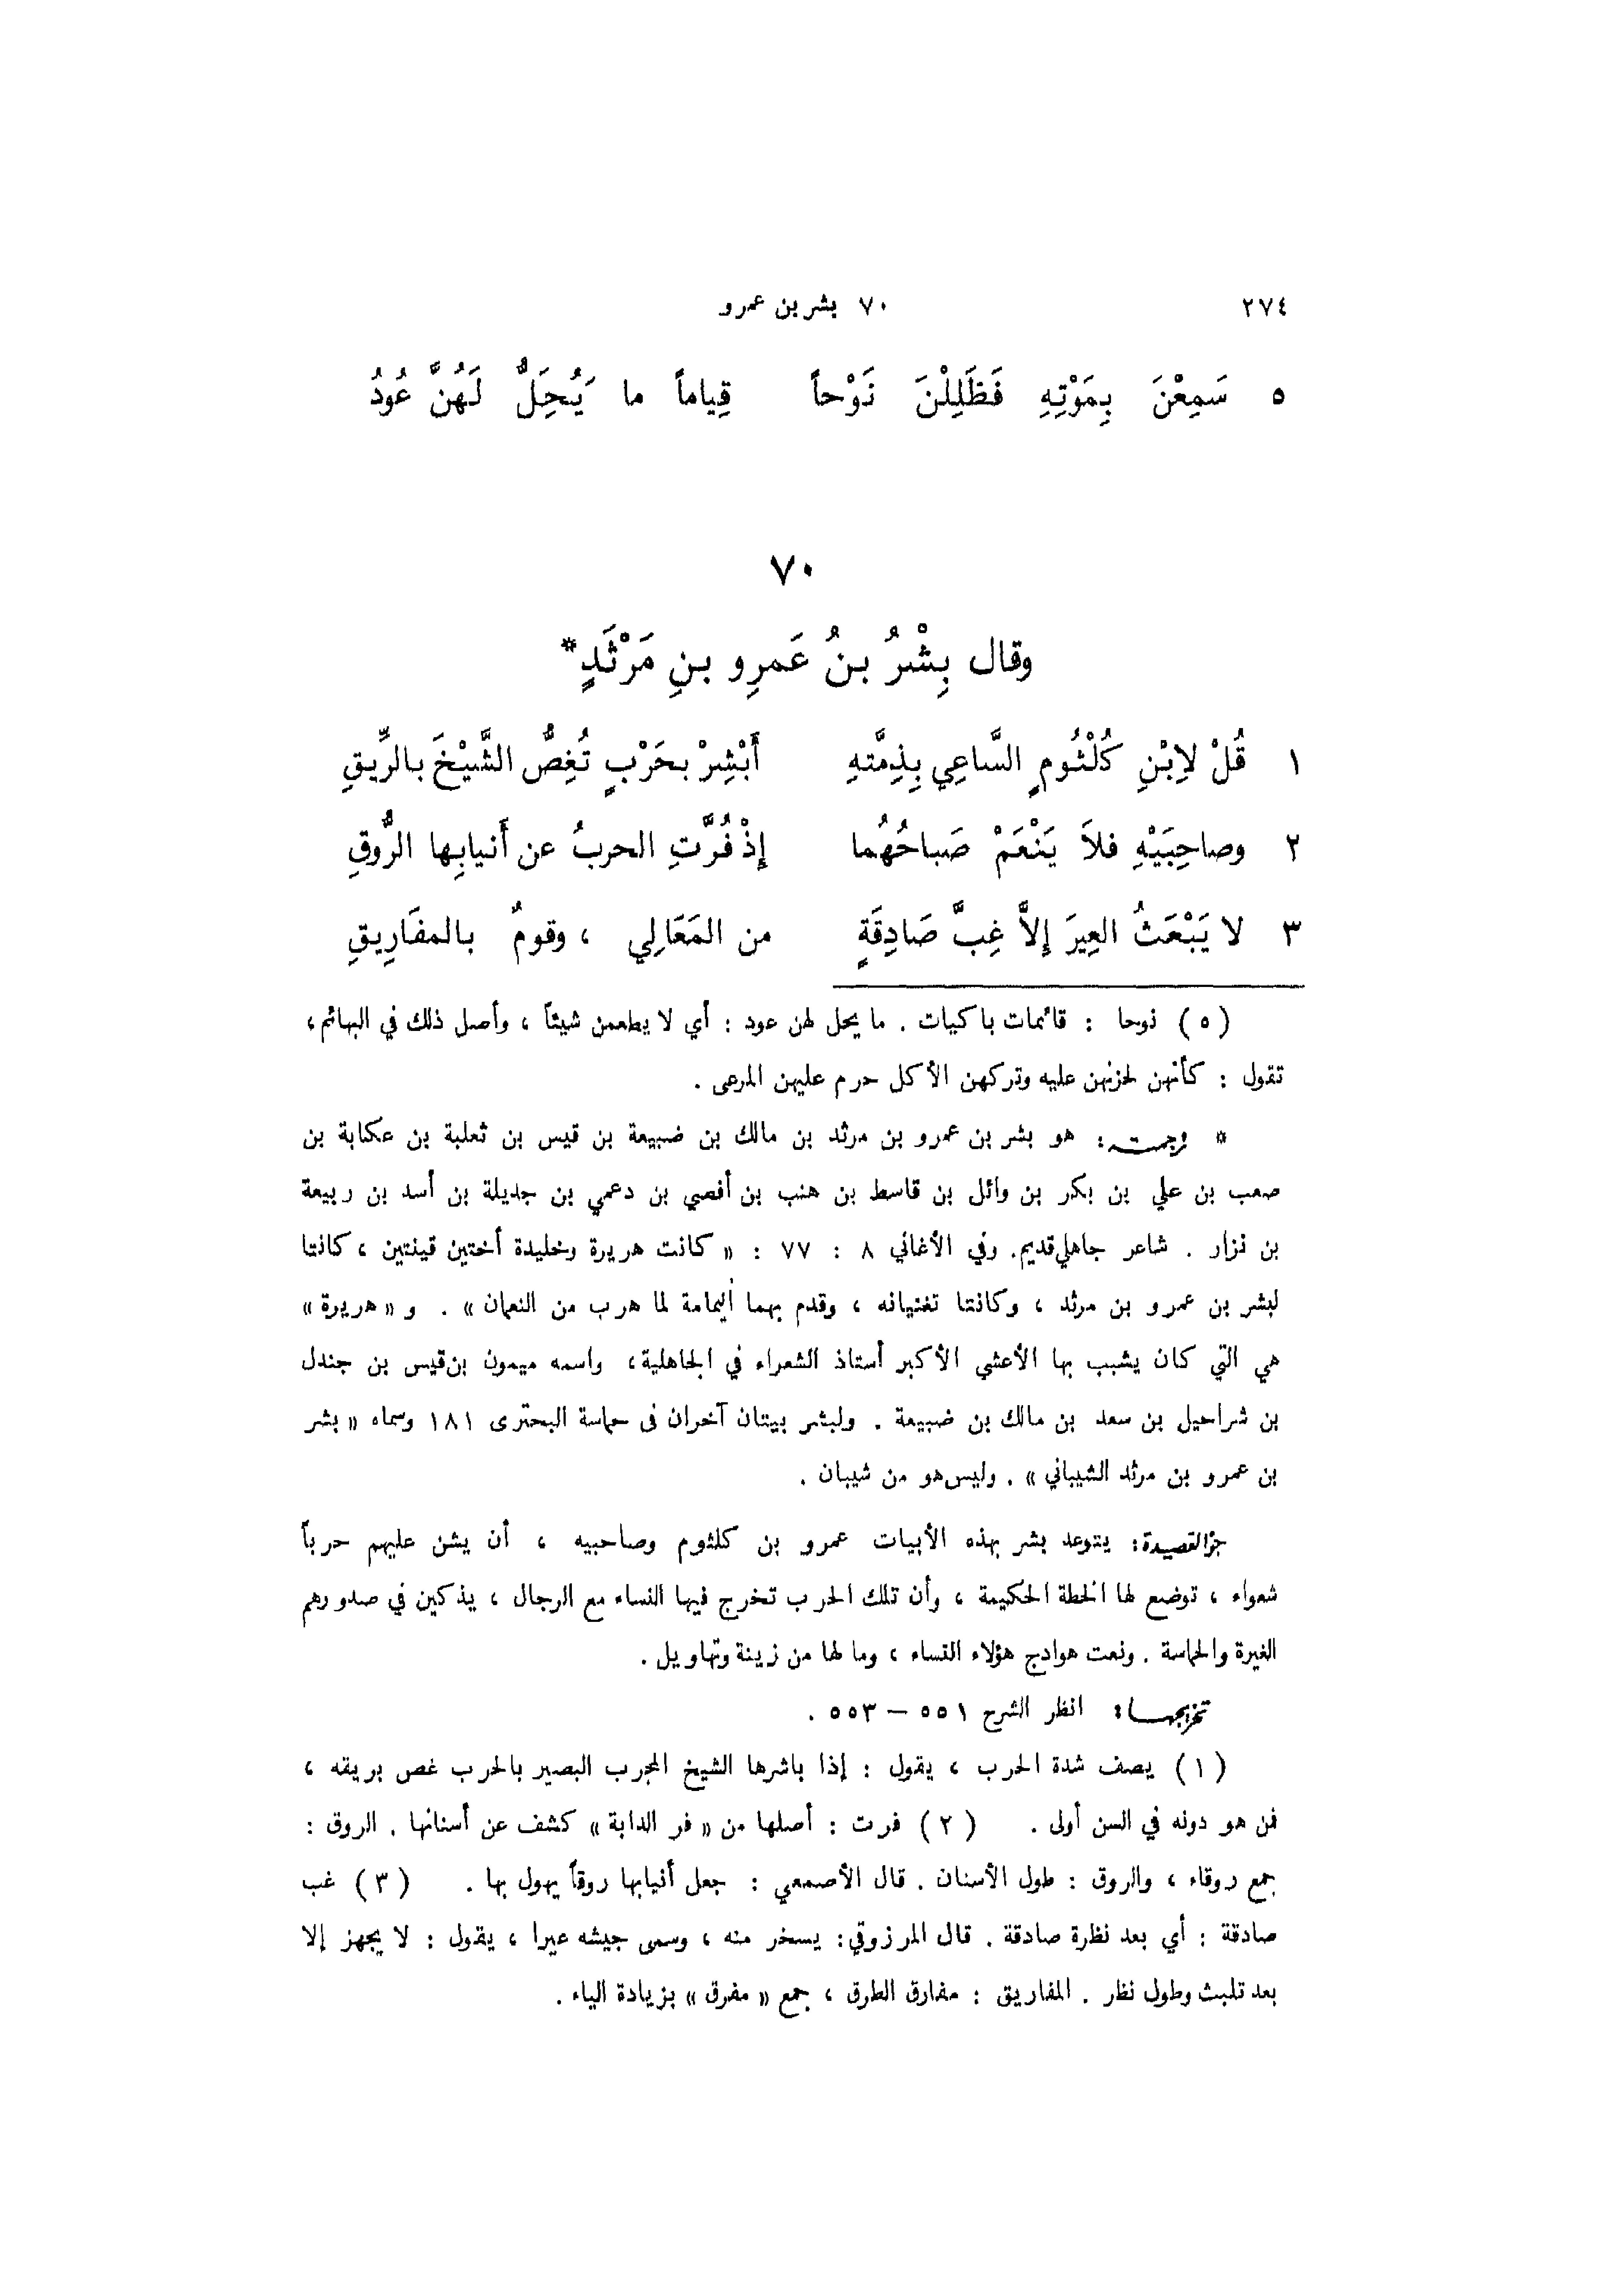 ٢٧٤ ٧٠ بشر بن عمرو
٥ سَمِعْنَ بِمَوْتِهِ فَظَلِلْنَ نَوْحاً قِياماً ما يُحَلُّ لَهُنَّ عُودُ
٧٠
وقال بِشْرُ بنُ عَمرِو بنِ مَرْثَدٍ*
١ قُلْ لاِبْنِ كُلْثُومٍ السَّاعِي بِذِمَّتهِ أَبْشِرْ بحَرْبٍ تُغِصُّ الشَّيْخَ بالرِّيقِ
٢ وصاحِبَيْهِ فلاَ يَنْعَمْ صَباحُهُما إِذْ فُرَّتِ الحربُ عن أَنيابِها الرُّوقِ
٣ لا يَبْعَثُ العِيرَ إِلاَّ غِبَّ صَادِقَةٍ من المَعَالِي ، وقومٌ بالمفَارِيقِ
( ٥ ) نوحا : قائمات باكيات . ما يحل لهن عود : أي لا يطعمن شيئاً ، وأصل ذلك في البهائم ،
تقول : كأنهن لحزنهن عليه وتركهن الأكل حرم عليهن المرعى .
* ترجمته : هو بشر بن عمرو بن مرثد بن مالك بن ضبيعة بن قيس بن ثعلبة بن عكابة بن
صعب بن علي بن بكر بن وائل بن قاسط بن هنب بن أفصي بن دعمي بن جديلة بن أسد بن ربيعة
بن نزار . شاعر جاهلي قديم . وفي الأغاني ٨ : ٧٧ : « كانت هريرة وخليدة أختين قينتين ، كانتا
لبشر بن عمرو بن مرثد ، وكانتا تغنيانه ، وقدم بهما اليمامة لما هرب من النعمان » . و « هريرة »
هي التي كان يشبب بها الأعشي الأكبر أستاذ الشعراء في الجاهلية ، واسمه ميمون بن قيس بن جندل
بن شراحيل بن سعد بن مالك بن ضبيعة . ولبشر بيتان آخران فى حماسة البحترى ١٨١ وسماه « بشر
بن عمرو بن مرثد الشيباني » . وليس هو من شيبان .
جو القصيدة : يتوعد بشر بهذه الأبيات عمرو بن كلثوم وصاحبيه ، أن يشن عليهم حرباً
شعواء ، توضع لها الخطة الحكيمة ، وأن تلك الحرب تخرج فيها النساء مع الرجال ، يذكين في صدورهم
الغيرة والحماسة . ونعت هوادج هؤلاء النساء ، وما لها من زينة وتهاويل .
تخريجها : انظر الشرح ٥٥١ – ٥٥٣ .
( ١ ) يصف شدة الحرب ، يقول : إذا باشرها الشيخ المجرب البصير بالحرب غص بريقه ،
فمن هو دونه في السن أولى . ( ٢ ) فرت : أصلها من « فر الدابة » كشف عن أسنانها . الروق :
جمع روقاء ، والروق : طول الأسنان . قال الأصمعي : جعل أنيابها روقاً يهول بها . ( ٣ ) غب
صادقة : أي بعد نظرة صادقة . قال المرزوقي : يسخر منه ، وسمى جيشه عيرا ، يقول : لا يجهز إلا
بعد تلبث وطول نظر . المفاريق : مفارق الطرق ، جمع « مفرق » بزيادة الياء .